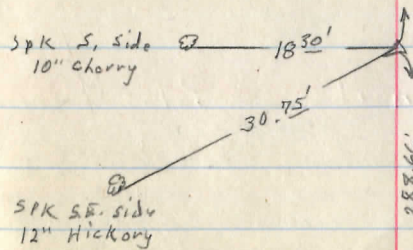 Spk S. side
10" Cherry
18 30'
30.75'
SPK S.E. side
12" Hickory
288.66'